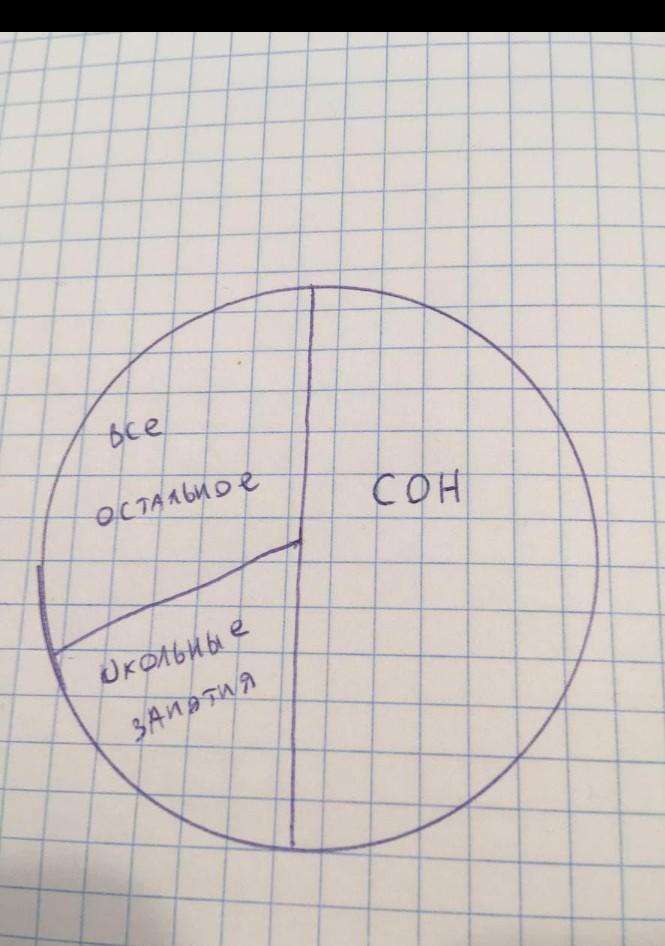 все
остальное
СОН
школьные
занятия